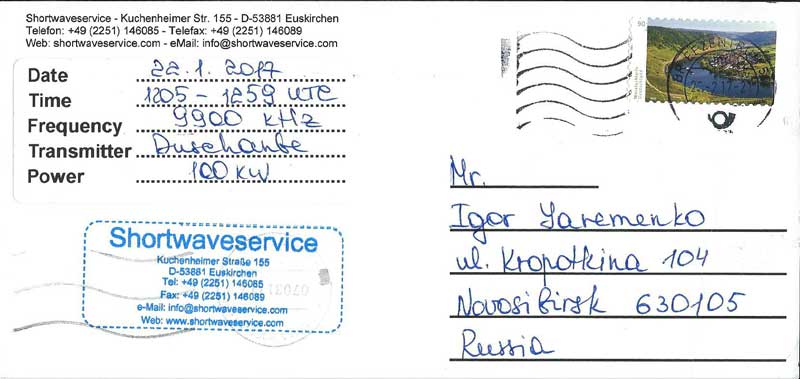 Shortwaveservice - Kuchenheimer Str. 155 - D-53881 Euskirchen
Telefon: +49 (2251) 146085 - Telefax: +49 (2251) 146089
Web: shortwaveservice.com - eMail: info@shortwaveservice.com
Date 22.1.2017
Time 1205 - 1259 UTC
Frequency 9900 kHz
Transmitter Duschanbe
Power 100 kW
Shortwaveservice
Kuchenheimer Straße 155
D-53881 Euskirchen
Tel: +49 (2251) 146085
Fax: +49 (2251) 146089
e-Mail: info@shortwaveservice.com
Web: www.shortwaveservice.com
90
Mr.
Igor Yaremenko
ul. Kropotkina 104
Novosibirsk 630105
Russia